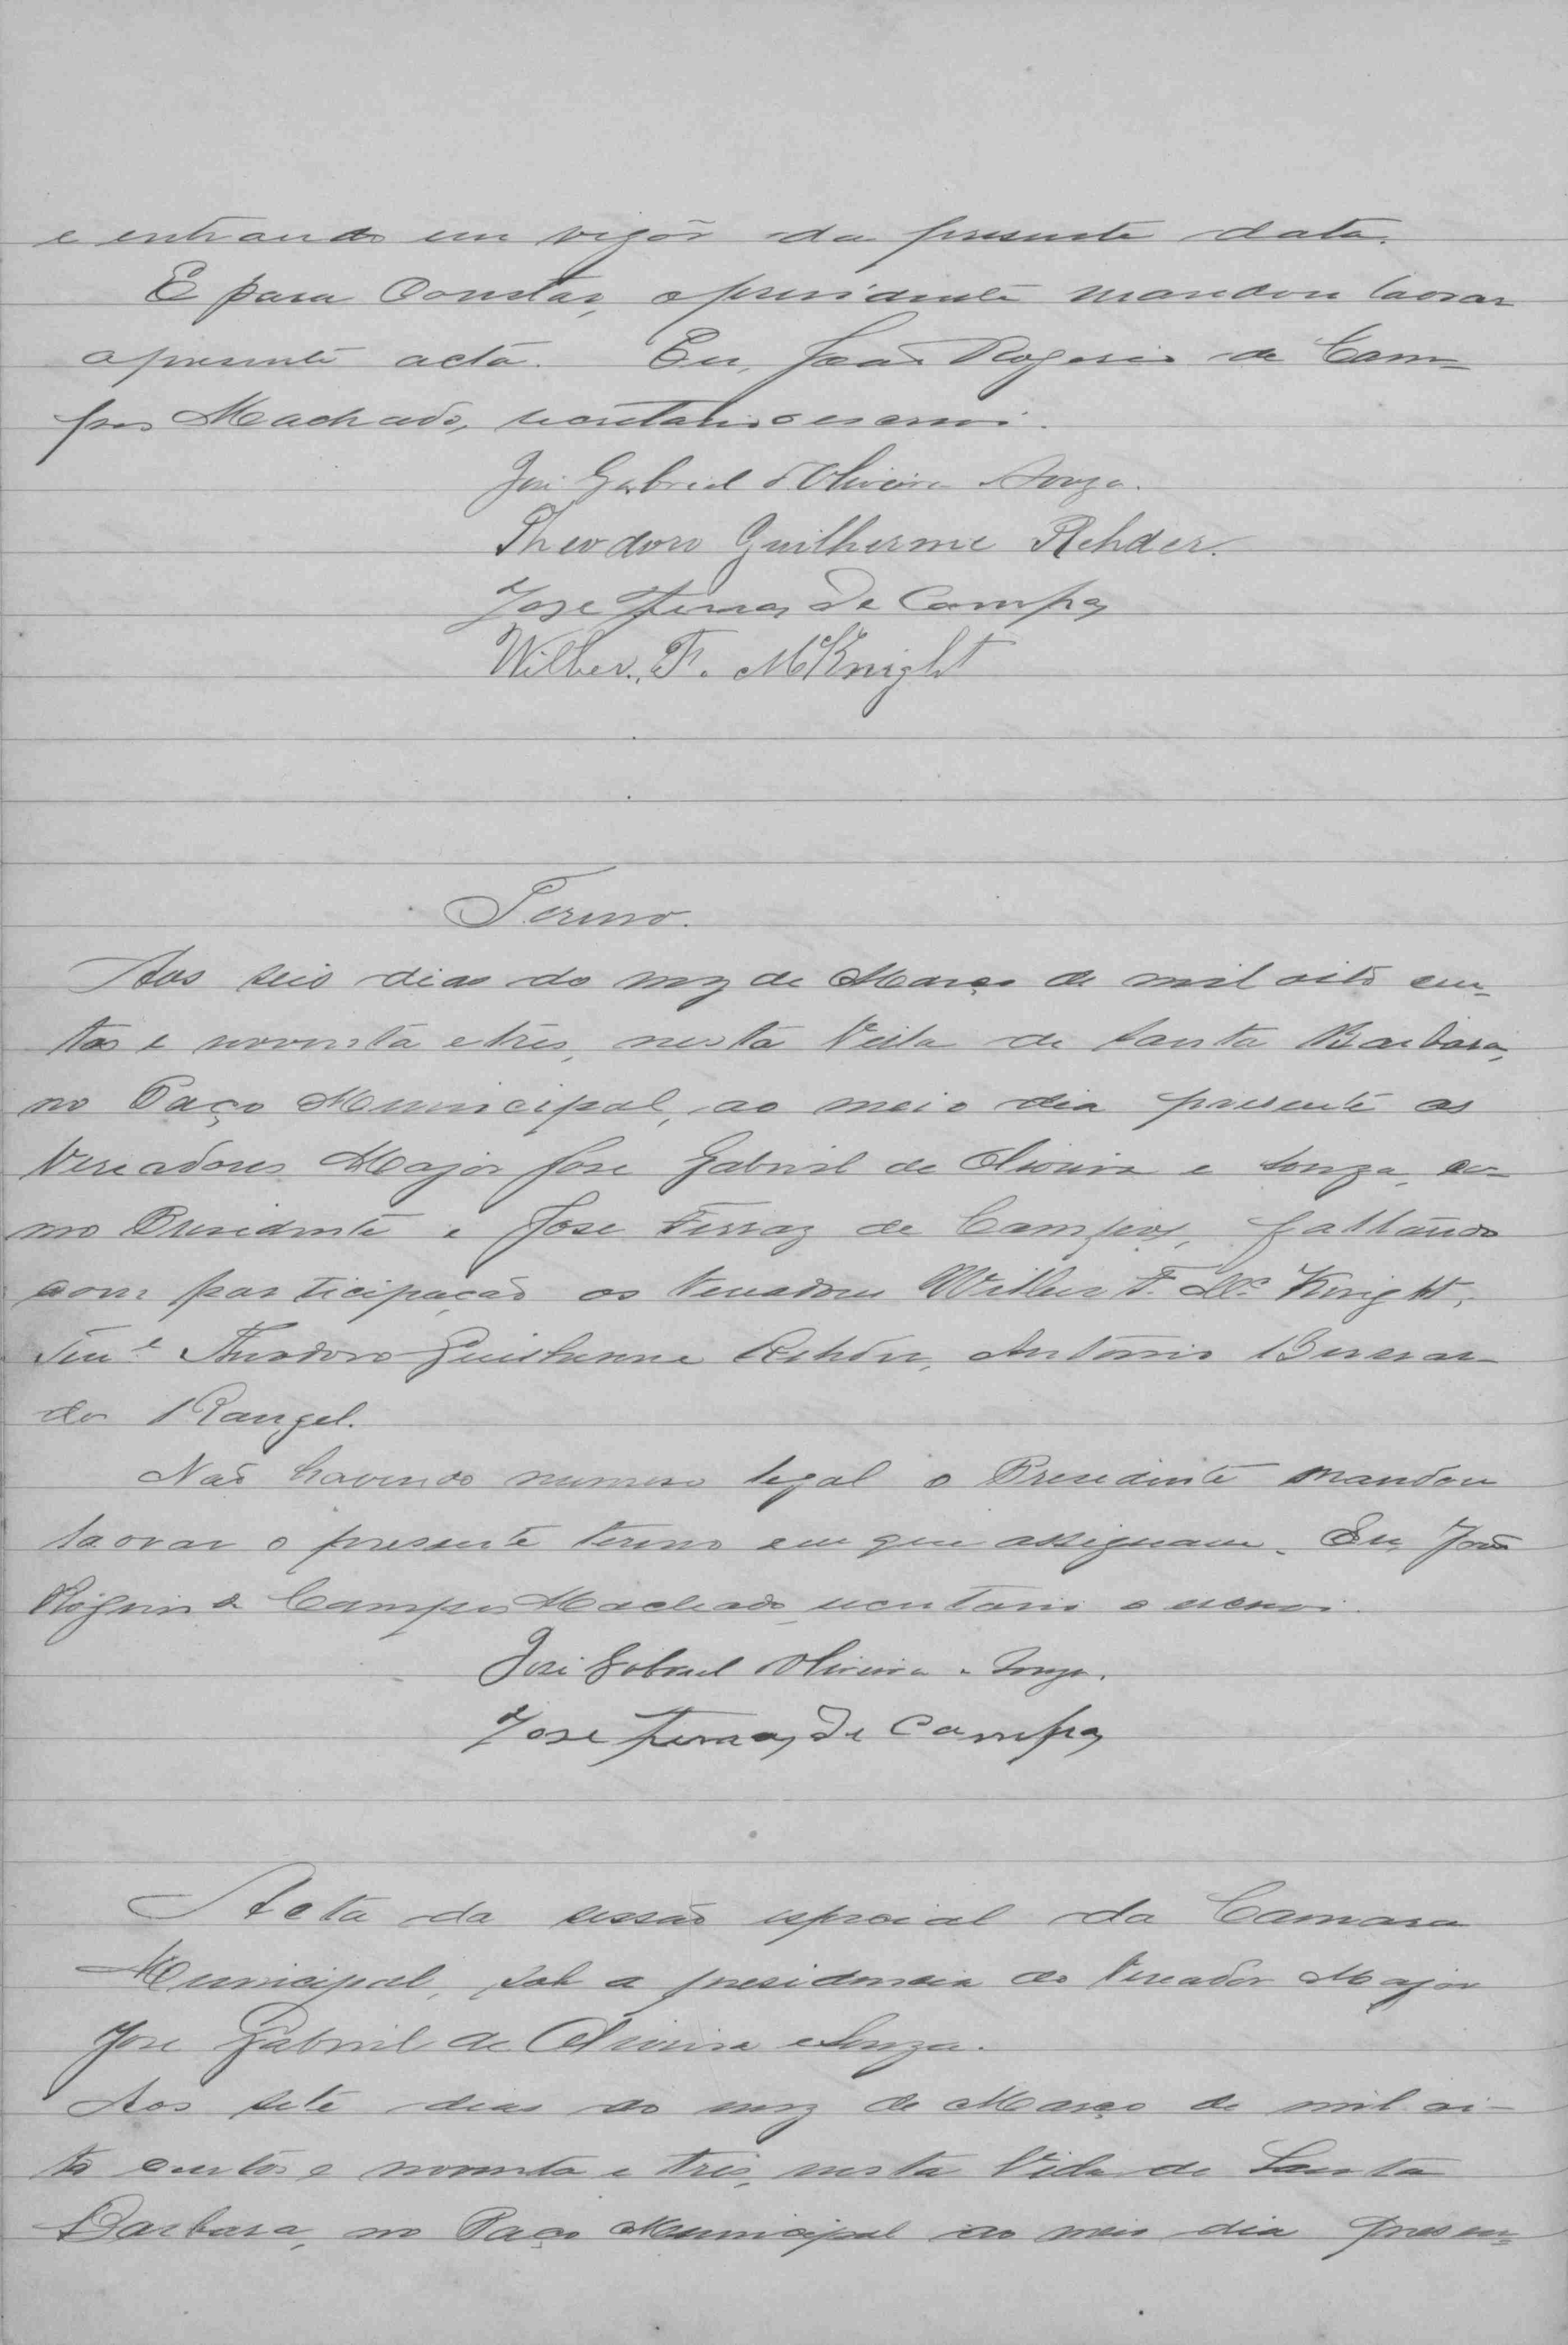 e entrando em vigôr da presente data.
E para constar, o presidente mandou lavrar
a presente acta. Eu, João Rogerio de Cam-
pos Machado, secretario o escrevi.
José Gabriel d'Oliveira e Souza.
Theodoro Guilherme Rehder.
Jose Ferraz de Campos
Wilber. F. McKnight
Termo.
Aos seis dias do mez de Março de mil oito cen-
tos e noventa e tres, nesta Villa de Santa Barbara,
no Paço Municipal, ao meio dia presente os
Vereadores Major Jose Gabriel de Oliveira e Souza, co-
mo Presidente e Jose Ferraz de Campos, faltando
com participação os Vereadores Wilber F. Mc. Knight,
Tene. Theodoro Guilherme Rehder, Antonio Bernar-
do Rangel.
Não havendo numero legal o Presidente mandou
lavrar o presente termo em que assignam. Eu, João
Rogerio de Campos Machado secretario o escrevi.
José Gabriel Oliveira e Souza.
Jose Ferraz de Campos
Acta da sessão especial da Camara
Municipal, sob a presidencia do Vereador Major
Jose Gabriel de Oliveira e Souza.
Aos sete dias do mez de Março de mil oi-
to centos e noventa e tres, nesta Villa de Santa
Barbara, no Paço Municipal ao meio dia presen-